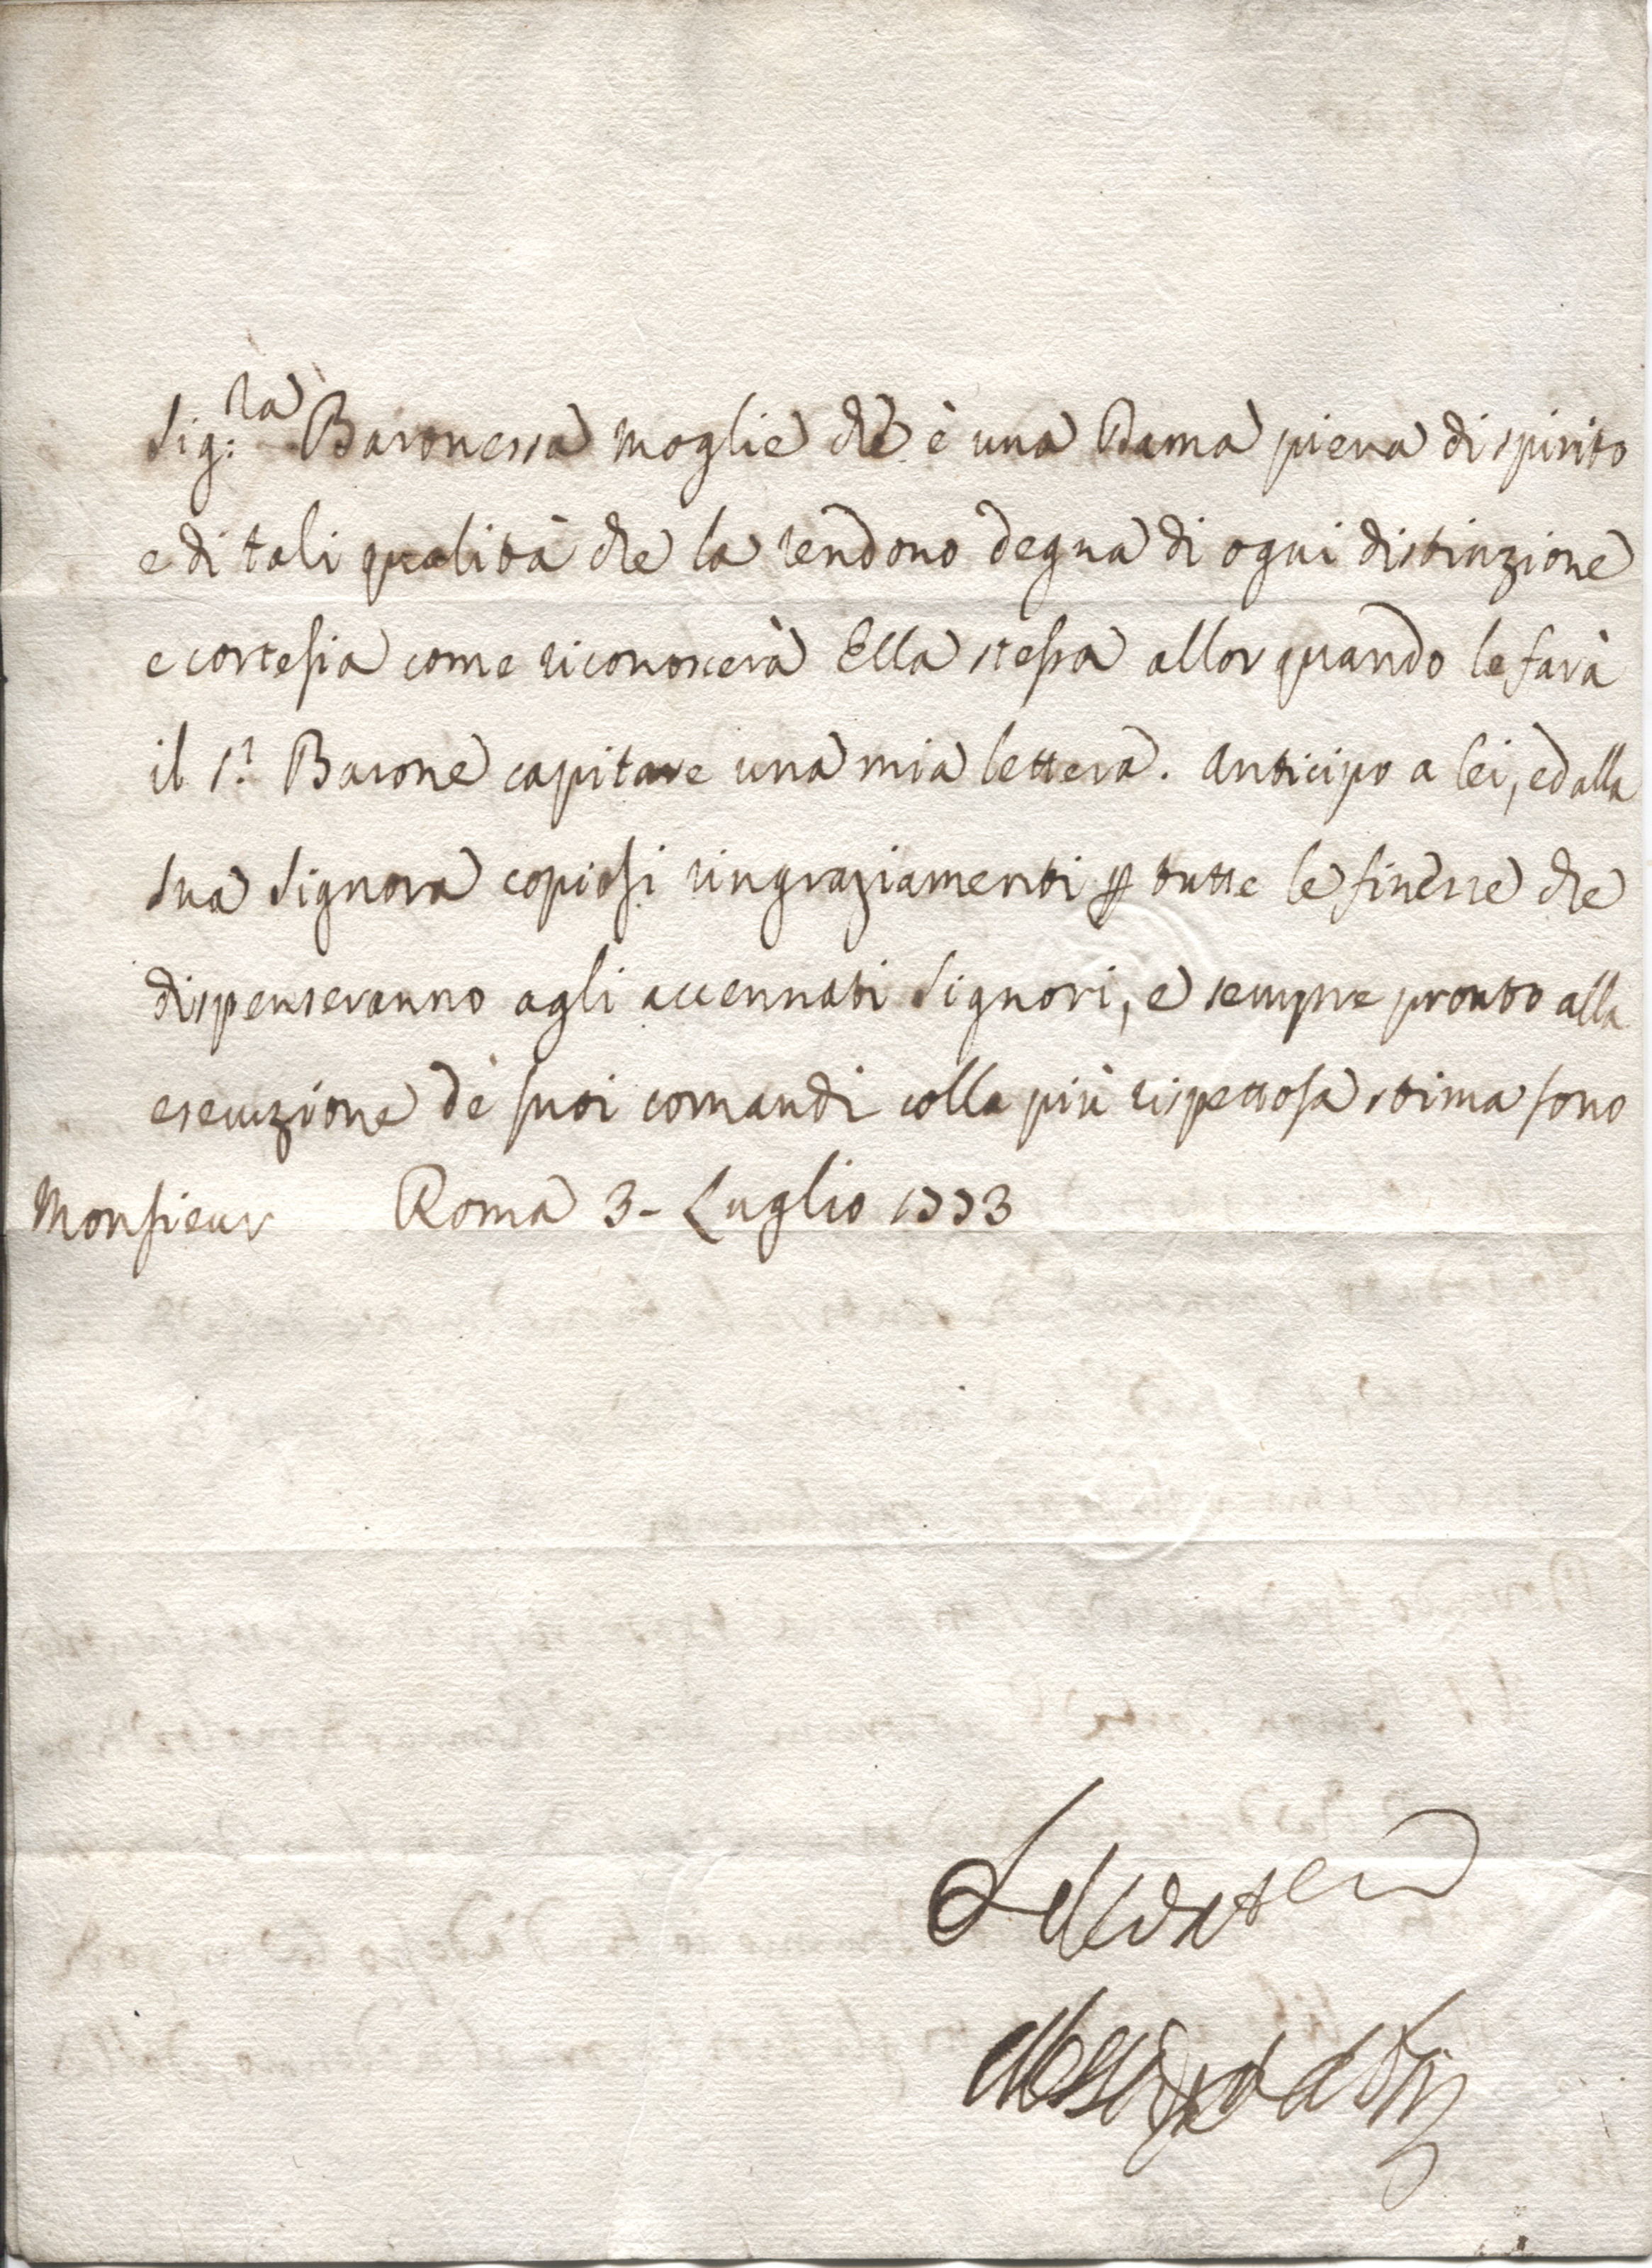 Sig:ra Baronessa moglie che è una Dama piena di spirito
e di tali qualità che la rendono degna di ogni distinzione
e cortesia come riconoscerà Ella stessa allor quando le farà
il S.r Barone capitare una mia lettera. Anticipo a lei, ed alla
sua Signora copiosi ringraziamenti p tutte le finezze che
dispenseranno agli accennati Signori, e sempre pronto alla
esecuzione de' suoi comandi colla più rispettosa stima sono
Monsieur Roma 3 - Luglio 1773